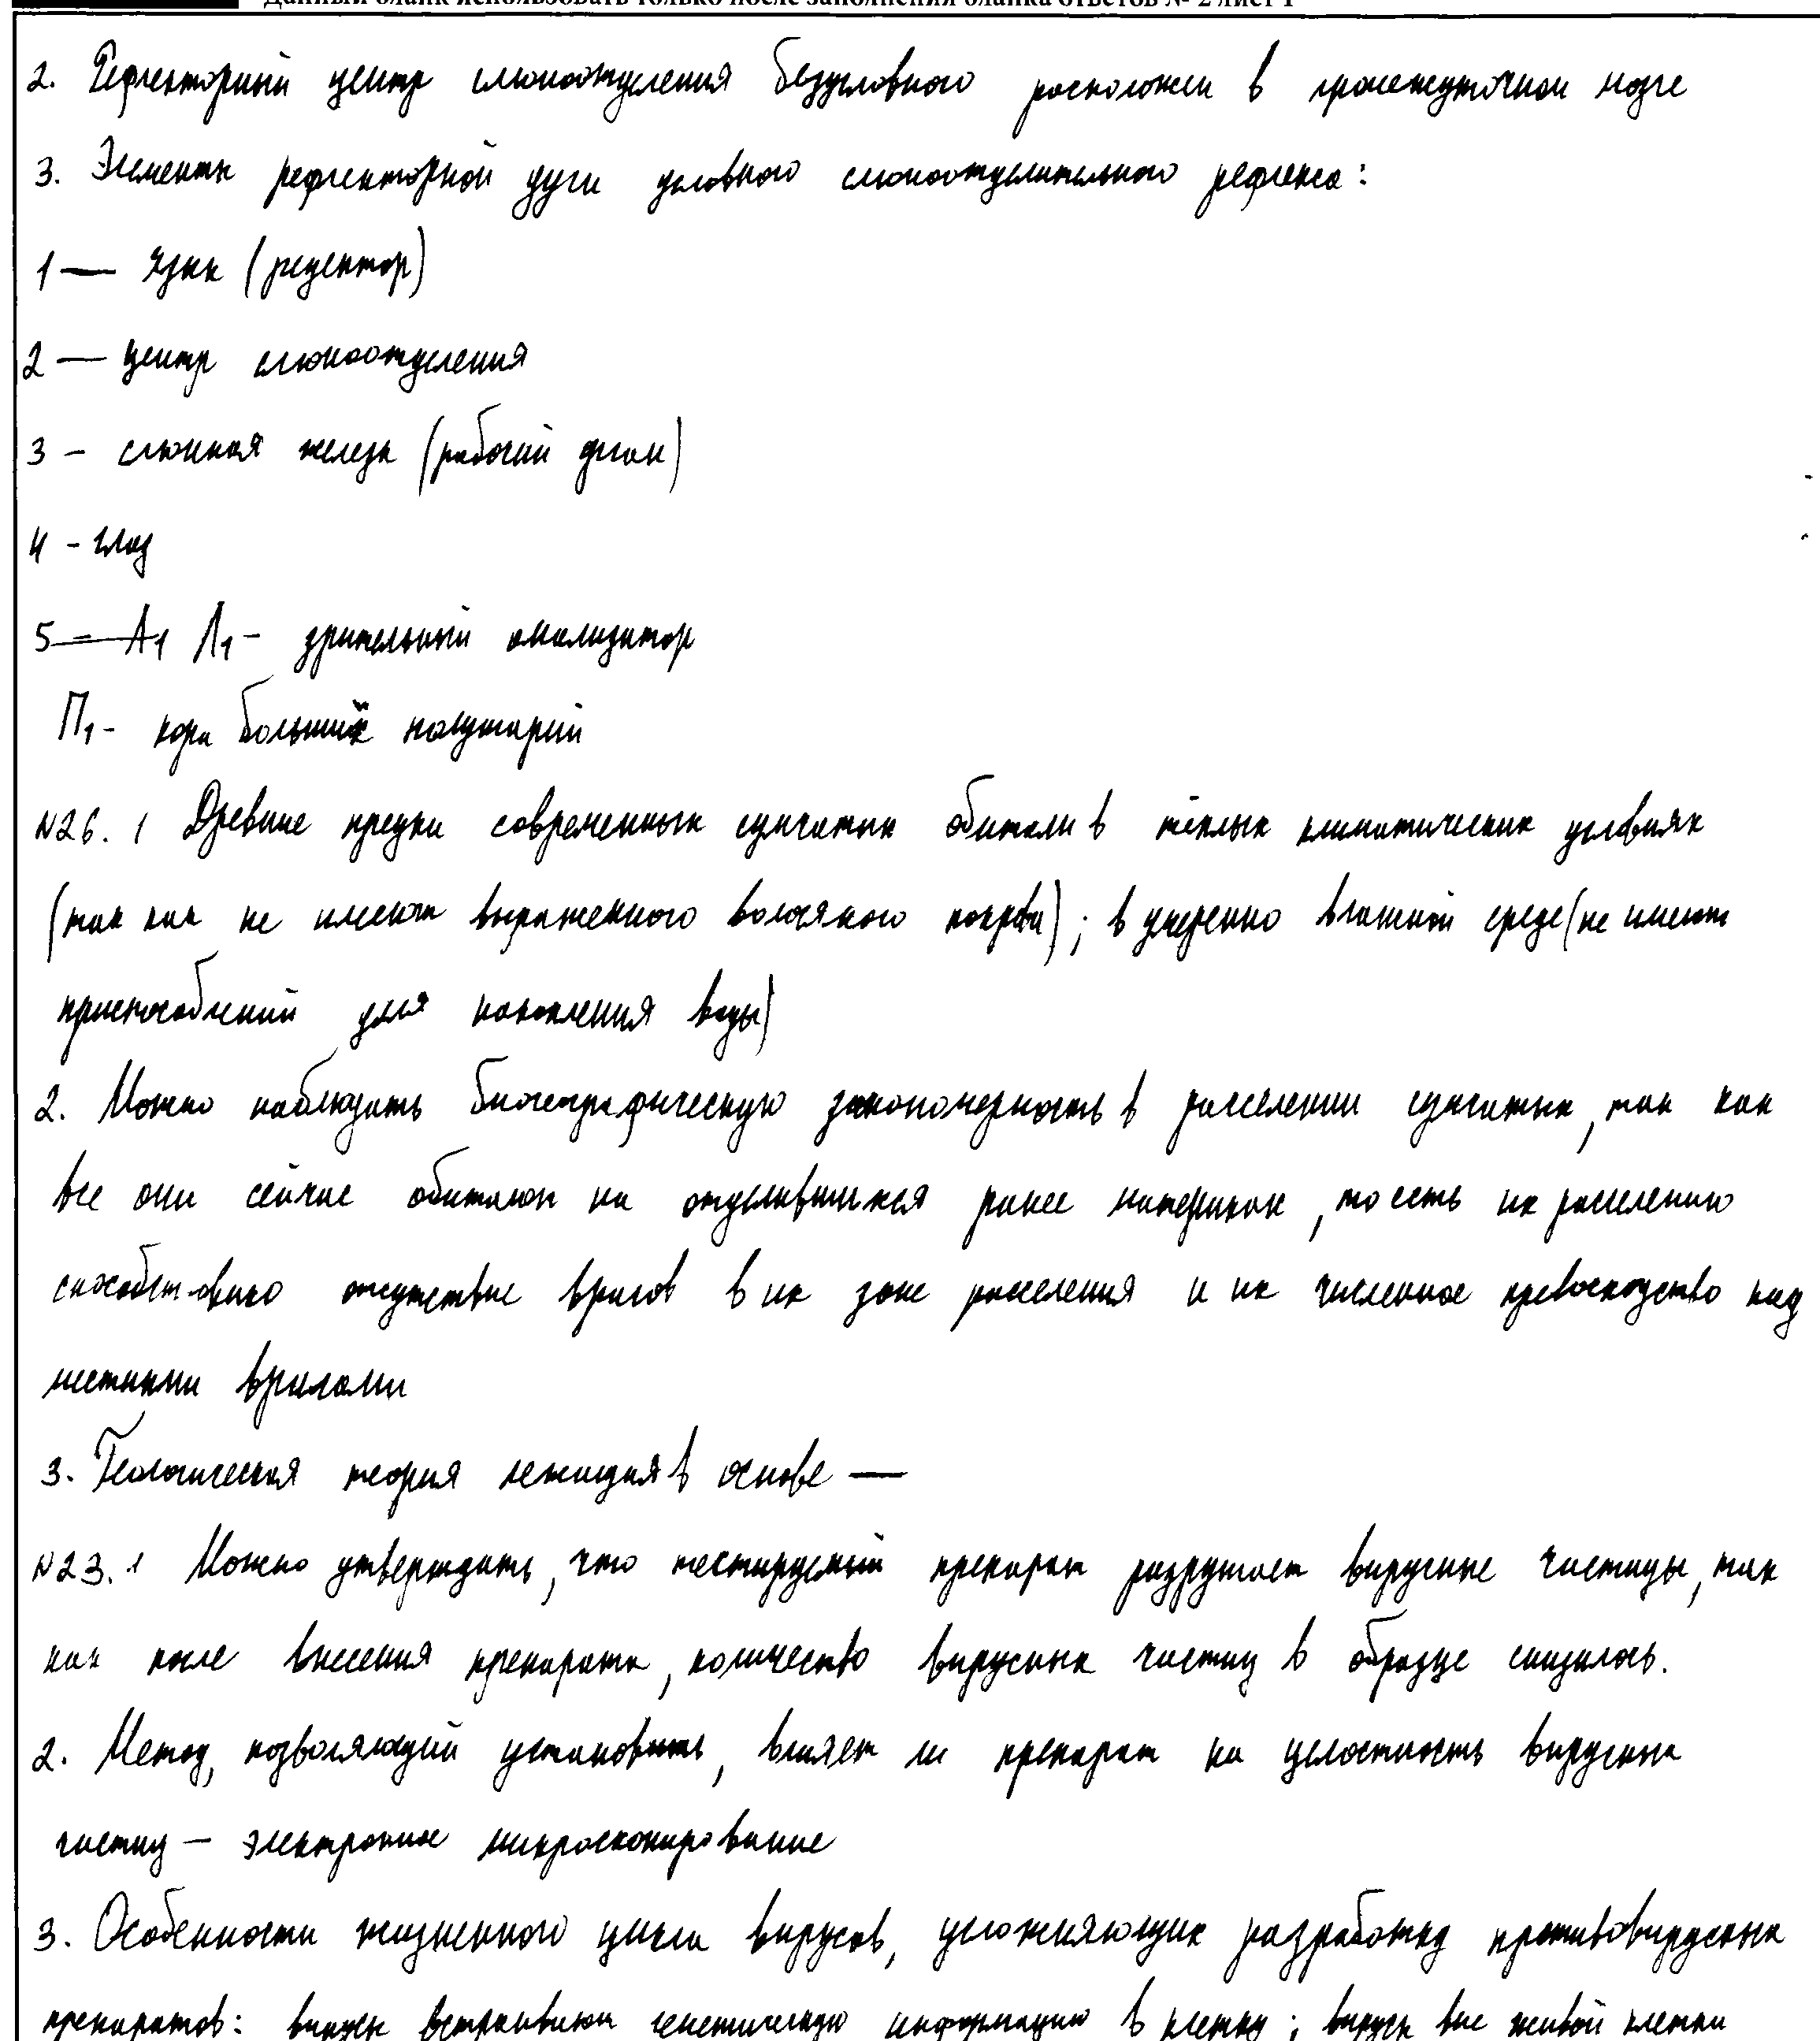 Данный бланк использовать только после заполнения бланка ответов № 2 лист 1
2. Рефлекторный центр слюноотделения безусловного расположен в промежуточном мозге
3. Элементы рефлекторной дуги условного слюноотделительного рефлекса:
1 — язык (рецептор)
2 — центр слюноотделения
3 - слюнная железа (рабочий орган)
4 - глаз
5 - А1 Л1 - зрительный анализатор
П1 - кора больших полушарий
№26. 1 Древние предки современных сумчатых обитали в тёплых климатических условиях
(так как не имеют выраженного волосяного покрова); в умеренно влажной среде (не имеют
приспособлений для накопления воды)
2. Можно наблюдать биогеографическую закономерность в расселении сумчатых, так как
все они сейчас обитают на отделившихся ранее материках, то есть их расселению
способствовало отсутствие врагов в их зоне расселения и их численное превосходство над
местными врагами
3. Геологическая теория лежащая в основе —
№23. 1 Можно утверждать, что тестируемый препарат разрушает вирусные частицы, так
как после внесения препарата, количество вирусных частиц в образце снизилось.
2. Метод, позволяющий установить, влияет ли препарат на целостность вирусных
частиц — электронное микроскопирование
3. Особенности жизненного цикла вирусов, усложняющих разработку противовирусных
препаратов: вирусы встраивают генетическую информацию в клетку; вирусы вне живой клетки